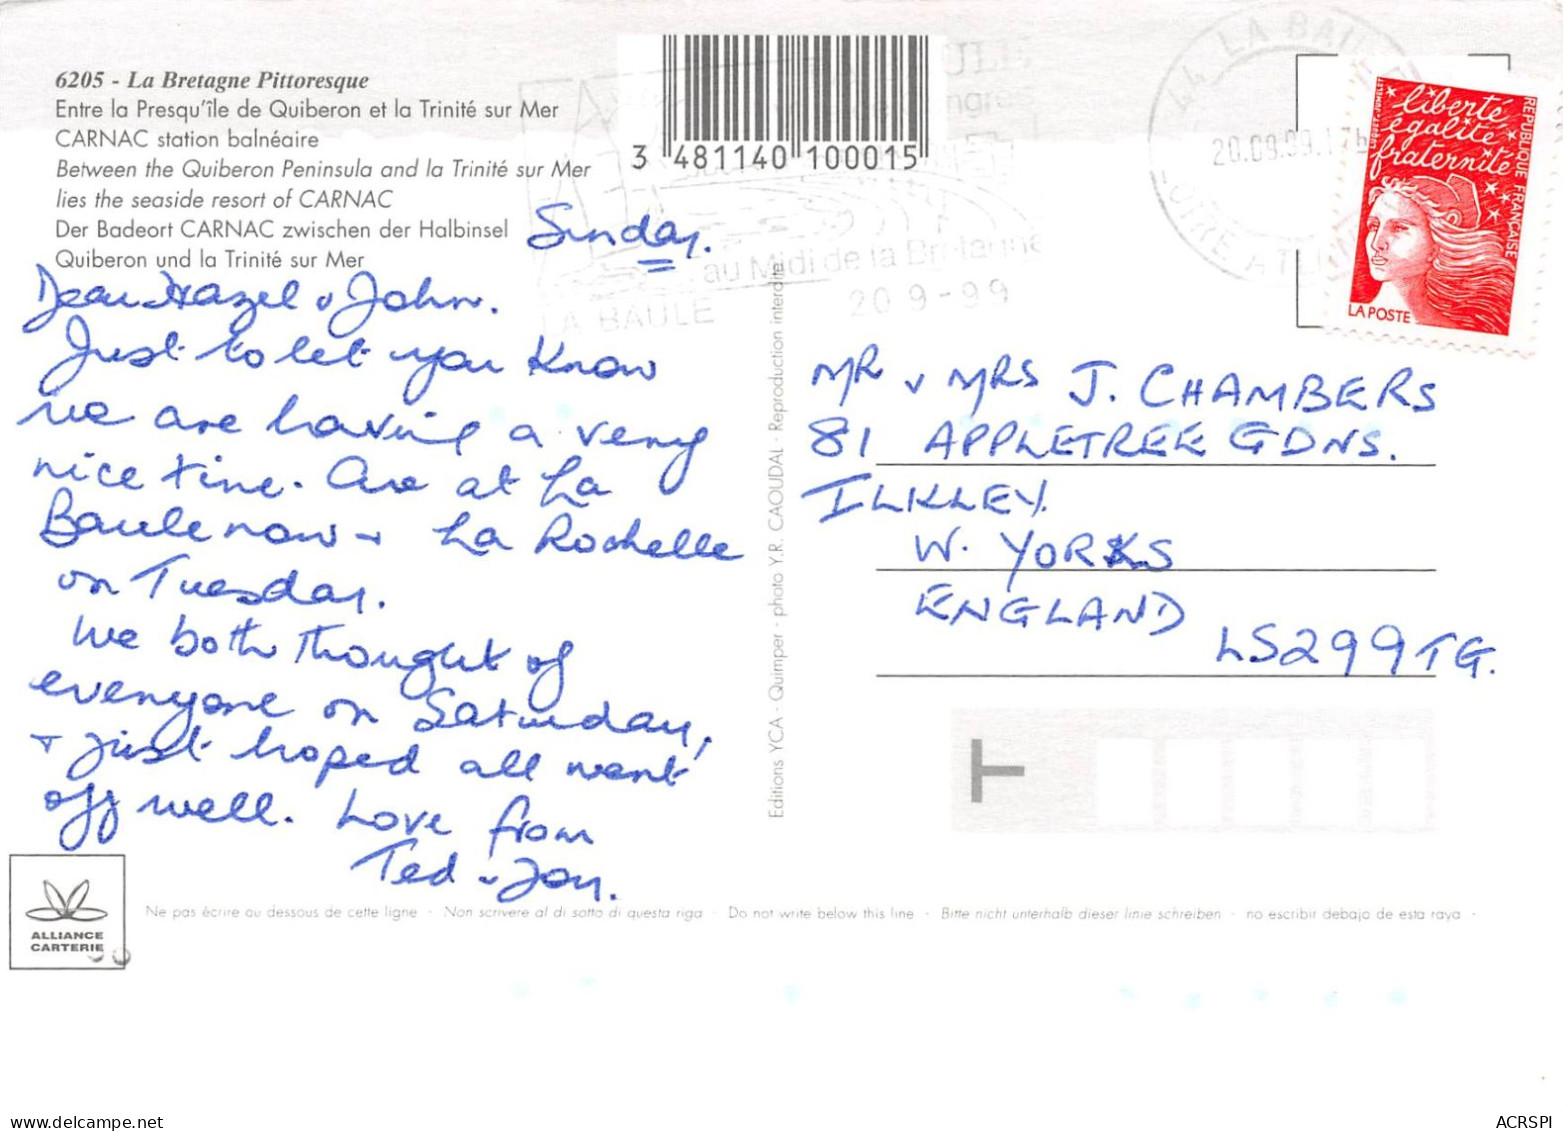 6205 - La Bretagne Pittoresque
Entre la Presqu'île de Quiberon et la Trinité sur Mer
CARNAC station balnéaire
Between the Quiberon Peninsula and la Trinité sur Mer
lies the seaside resort of CARNAC
Der Badeort CARNAC zwischen der Halbinsel
Quiberon und la Trinité sur Mer
3 481140 100015
Sunday.
Dear Hazel + John.
Just to let you know
we are having a very
nice time. Are at La
Baule now + La Rochelle
on Tuesday.
We both thought of
everyone on Saturday,
+ just hoped all went
off well. Love from
Ted + Joy.
au Midi de la Bretagne
LA BAULE
20 9 - 99
44 LA BAULE
20.09.99.17h
LOIRE ATLANTIQUE
liberté
égalité
fraternité
RÉPUBLIQUE FRANÇAISE
LA POSTE
MR + MRS J. CHAMBERS
81 APPLETREE GDNS.
ILKLEY
W. YORKS
ENGLAND
LS29 9TG.
Editions YCA - Quimper - photo Y.R. CAOUDAL - Reproduction interdite
T
ALLIANCE
CARTERIE
Ne pas écrire au dessous de cette ligne - Non scrivere al di sotto di questa riga - Do not write below this line - Bitte nicht unterhalb dieser linie schreiben - no escribir debajo de esta raya -
delcampe.net
ACRSPI